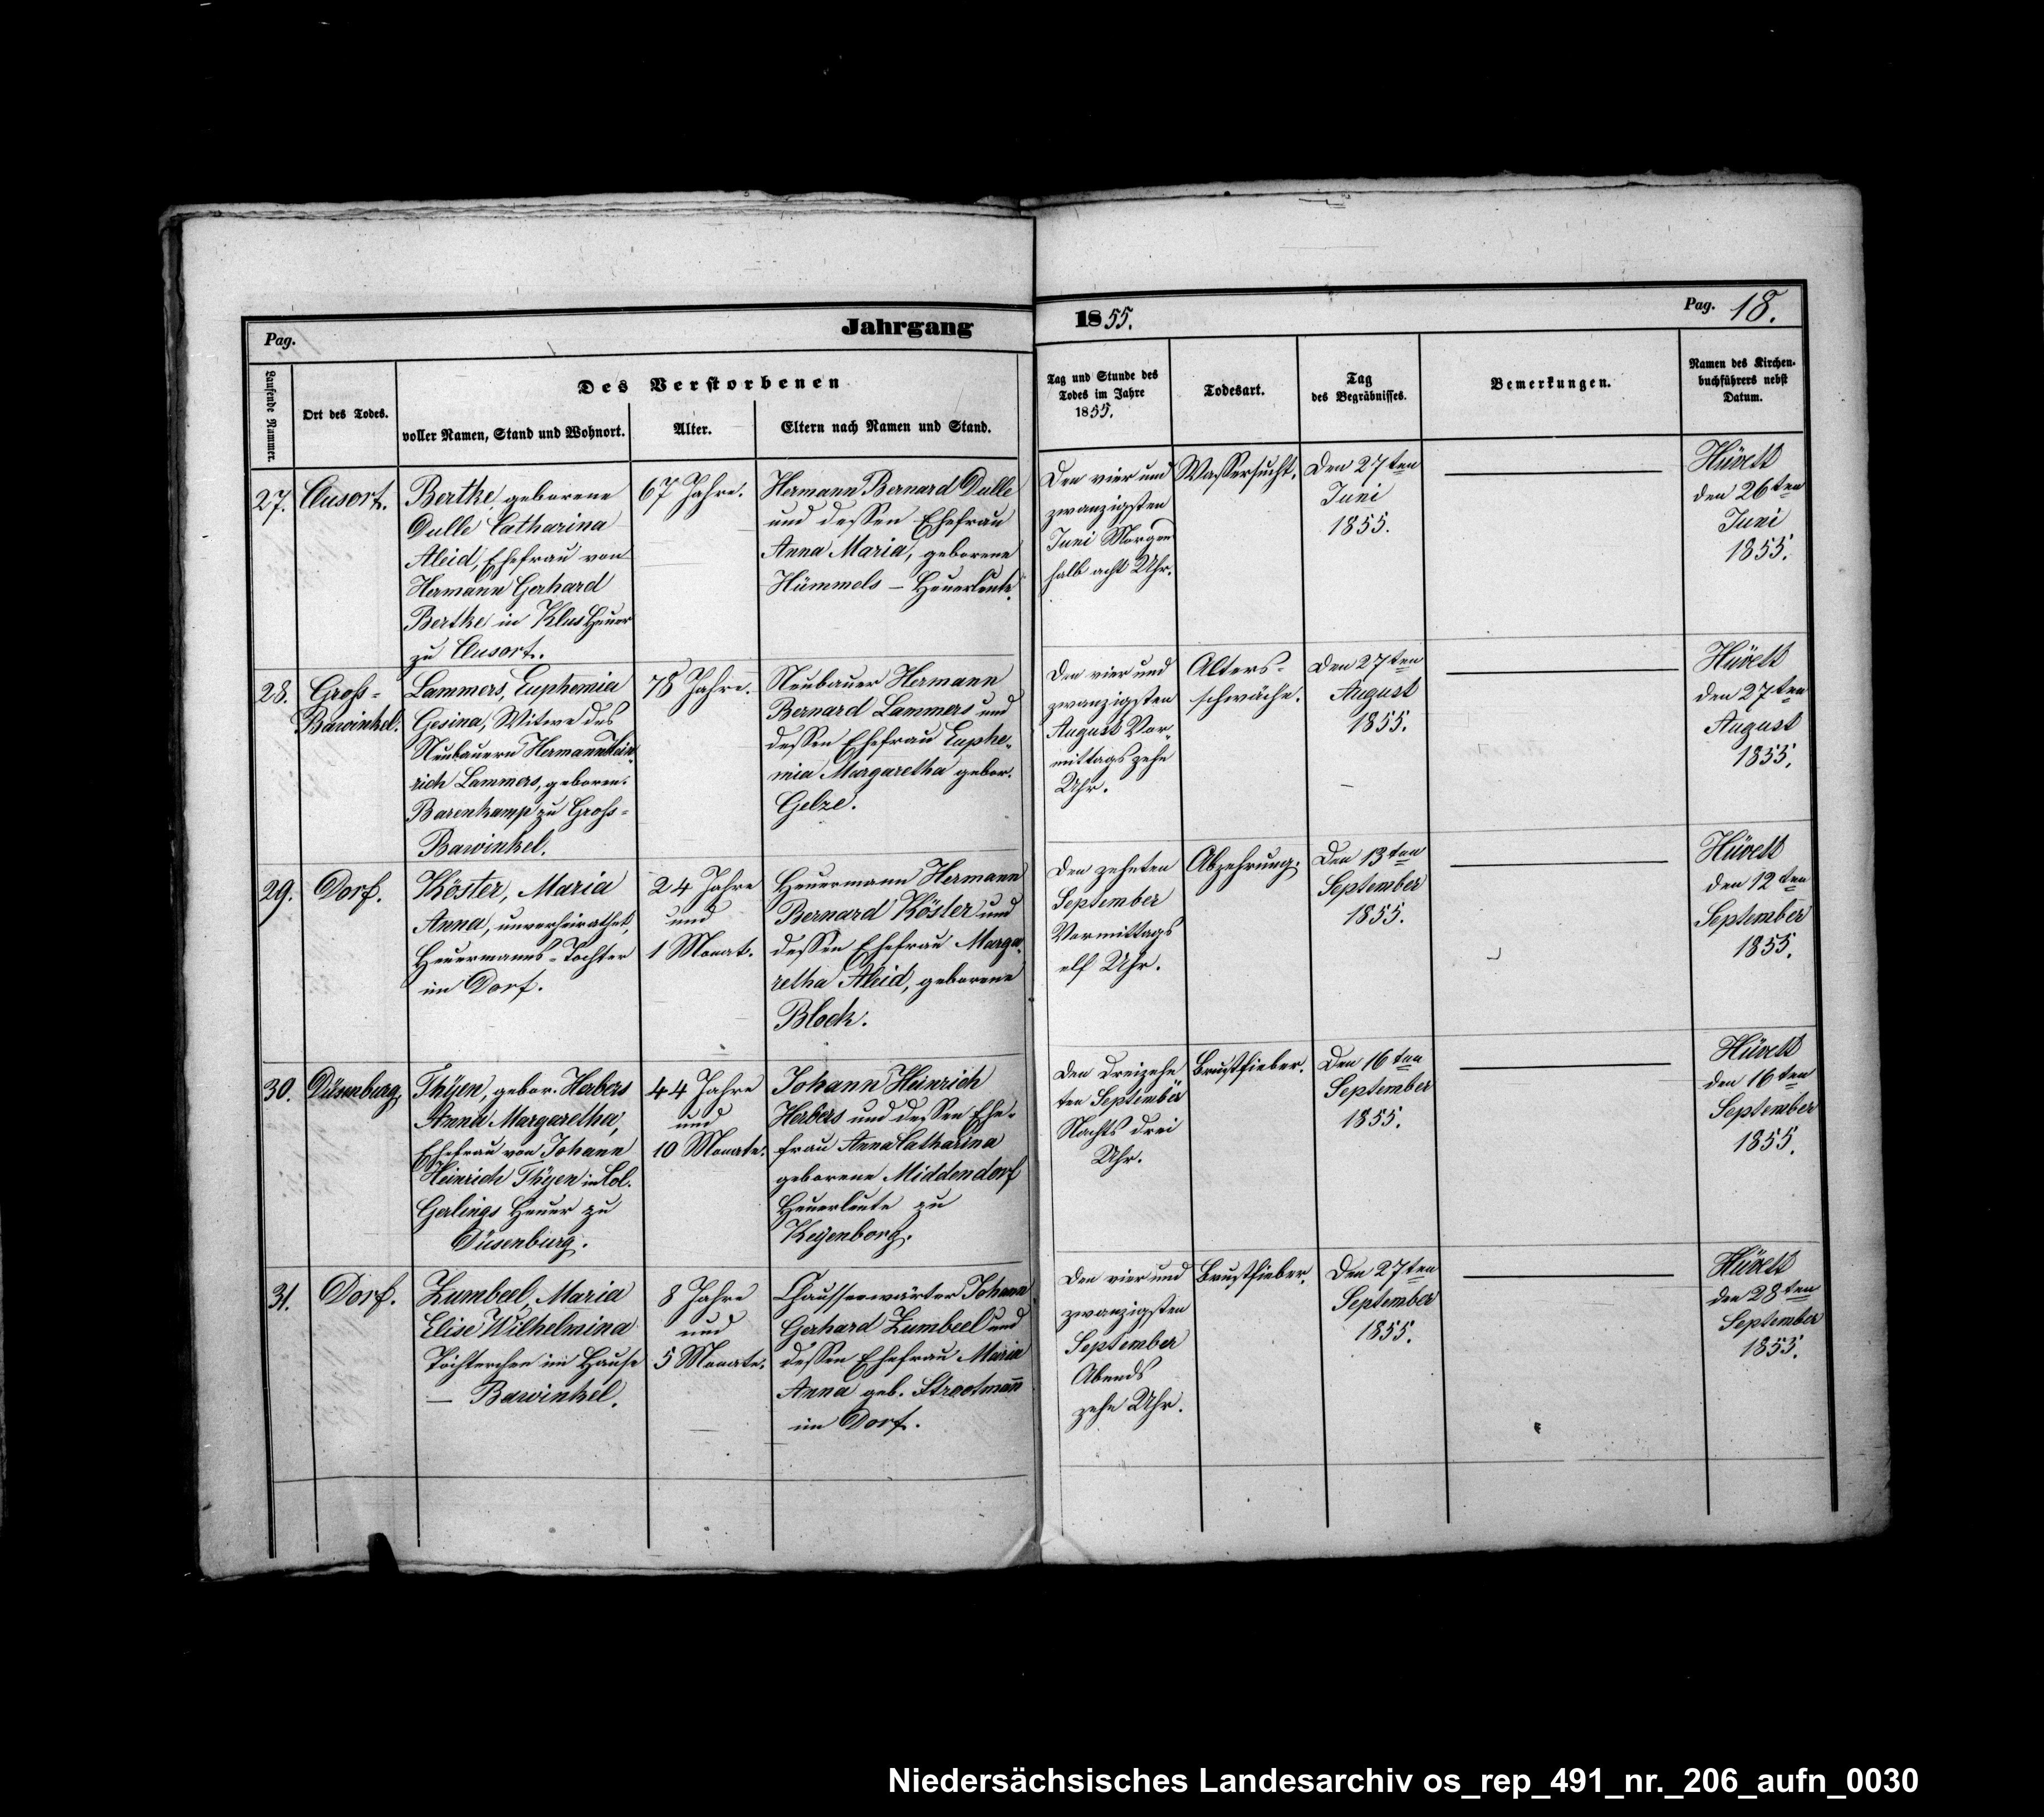 Pag.
Jahrgang
1855.
Pag. 18.
Laufende Nummer.
Ort des Todes.
Des Verstorbenen
voller Namen, Stand und Wohnort.
Alter.
Eltern nach Namen und Stand.
Tag und Stunde des
Todes im Jahre
1855.
Todesart.
Tag
des Begräbnisses.
Bemerkungen.
Namen des Kirchen-
buchführers nebst
Datum.
27.
Clusort.
Bertke, geborene
Dulle Catharina
Aleid, Ehefrau von
Hermann Gerhard
Bertke in Klus Heuer
zu Clusort.
67 Jahre.
Hermann Bernard Dulle
und dessen Ehefrau
Anna Maria, geborene
Hümmels – Heuerleute.
Den vier und
zwanzigsten
Juni Morgens
halb acht Uhr.
Wassersucht.
Den 27ten
Juni
1855.
Hüvett
den 26ten
Juni
1855.
28.
Groß-
Bawinkel.
Lammers, Euphemia
Gesina, Witwe des
Neubauern Hermann Hein-
rich Lammers, geboren.
Barenkamp zu Groß-
Bawinkel.
78 Jahre.
Neubauer Hermann
Bernard Lammers und
dessen Ehefrau Euphe-
mia Margaretha gebor.
Gelze.
Den vier und
zwanzigsten
August Vor-
mittags zehn
Uhr.
Alters-
schwäche.
Den 27ten
August
1855.
Hüvett
den 27ten
August
1855.
29.
Dorf.
Köster, Maria
Anna, unverheirathet,
Heuermanns-Tochter
im Dorf.
24 Jahre
und
1 Monat.
Heuermann Hermann
Bernard Köster und
dessen Ehefrau Marga-
retha Aleid, geborene
Block.
Den zehnten
September
Vormittags
elf Uhr.
Abzehrung.
Den 13ten
September
1855.
Hüvett
den 12ten
September
1855.
30.
Düsenburg.
Thÿen, gebor. Herbers
Anna Margaretha,
Ehefrau von Johann
Heinrich Thÿen in Col.
Gerlings Heuer zu
Düsenburg.
44 Jahre
und
10 Monate.
Johann Heinrich
Herbers und dessen Ehe-
frau Anna Catharina
geborene Middendorf
Heuerleute zu
Keÿenborg.
Den dreizehn
ten September
Nachts drei
Uhr.
Brustfieber.
Den 16ten
September
1855.
Hüvett
den 16ten
September
1855.
31.
Dorf.
Zumbeel, Maria
Elise Wilhelmina
Töchterchen im Hause
– Bawinkel.
8 Jahre
und
5 Monate.
Chausseewärter Johann
Gerhard Zumbeel und
dessen Ehefrau Maria
Anna geb. Strootmañ
im Dorf.
Den vier und
zwanzigsten
September
Abends
zehn Uhr.
Brustfieber.
Den 27ten
September
1855.
Hüvett
den 28ten
September
1855.
Niedersächsisches Landesarchiv os_rep_491_nr._206_aufn_0030